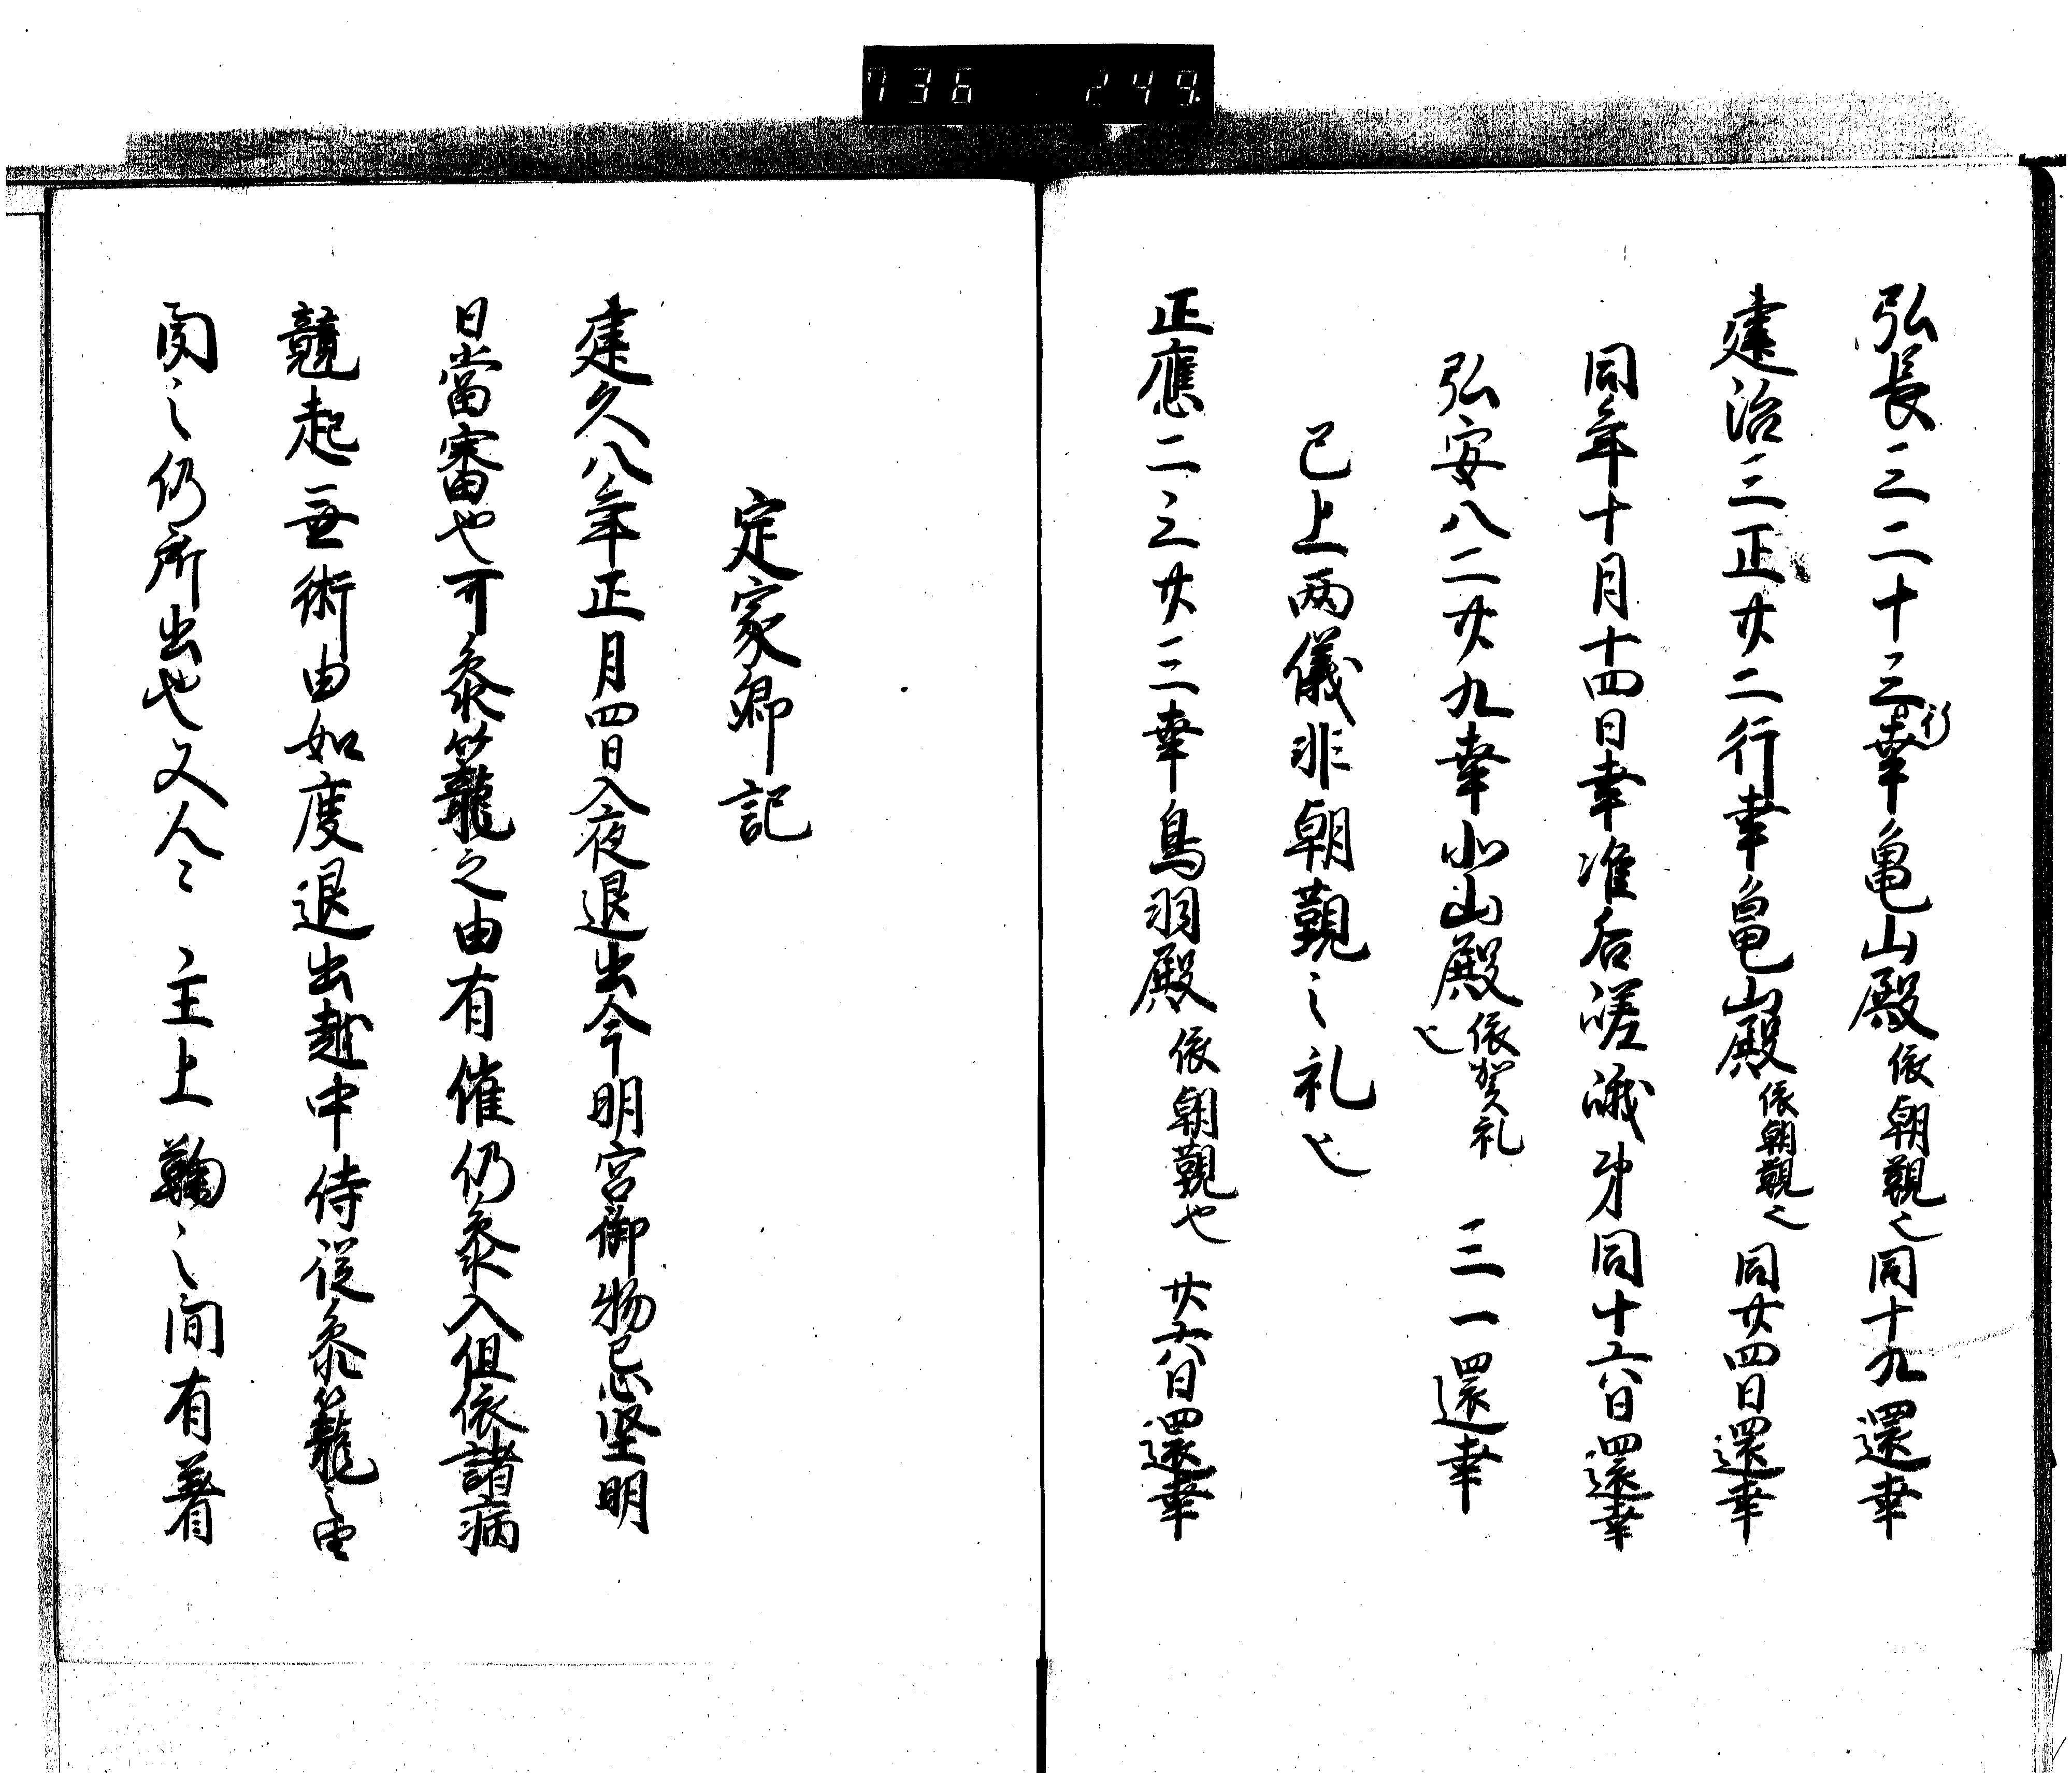 736 249
弘長三二十三行幸亀山殿依朝覲也同十九還幸
建治三正廿二行幸亀山殿依朝覲也同廿四日還幸
同年十月十四日幸准后嵯峨第同十六日還幸
弘安八二廿九幸北山殿依賀礼也三一還幸
已上両儀非朝覲之礼也
正應二三廿三幸鳥羽殿依朝覲也廿六日還幸
定家卿記
建久八年正月四日入夜退出今明宮御物忌堅明
日當審也可参籠之由有催仍参入但依諸病
競起無術由如度退出越中侍従参籠之由
聞之仍所出也又人々主上鞠之間有著